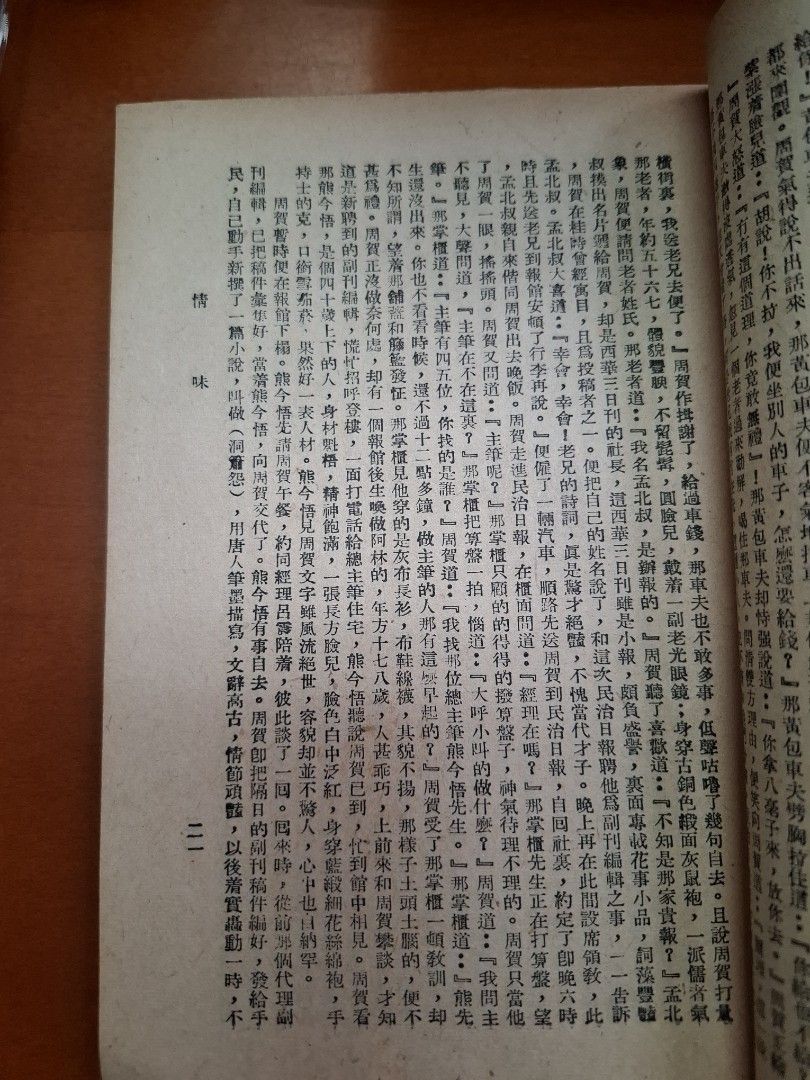 橫街裏，我送老兄去便了。』周賀作揖謝了，給過車錢，那車夫也不敢多事，低聲咕嚕了幾句自去。且說周賀打量
那老者，年約五十六七，體貌豐腴，不留髭鬚，圓臉兒，戴着一副老光眼鏡；身穿古銅色緞面灰鼠袍，一派儒者氣
象，周賀便請問老者姓氏。那老者道：『我名孟北叔，是辦報的。』周賀聽了喜歡道：『不知是那家貴報？』孟北
叔摸出名片遞給周賀，却是西華三日刊的社長，這西華三日刊雖是小報，頗負盛譽，裏面專載花事小品，詞藻豐豔
，周賀在桂時曾經寓目，且爲投稿者之一。便把自己的姓名說了，和這次民治日報聘他爲副刊編輯之事，一一告訴
孟北叔。孟北叔大喜道：『幸會，幸會！老兄的詩詞，眞是驚才絕豔，不愧當代才子。晚上再在此間設席領敎，此
時且先送老兄到報館安頓了行李再說。』便僱了一輛汽車，順路先送周賀到民治日報，自囘社裏，約定了卽晚六時
，孟北叔親自來偕同周賀出去晚飯。周賀走進民治日報，在櫃面問道：『經理在嗎？』那掌櫃先生正在打算盤，望
了周賀一眼，搖搖頭。周賀又問道：『主筆呢？』那掌櫃只顧的的得得的撥算盤子，神氣待理不理的。周賀只當他
不聽見，大聲問道，『主筆在不在這裏？』那掌櫃把算盤一拍，惱道：『大呼小叫的做什麼？』周賀道：『我問主
筆。』那掌櫃道：『主筆有四五位，你找的是誰？』周賀道：『我找那位總主筆熊今悟先生。』那掌櫃道：『熊先
生還沒出來。你也不看看時候，還不過十二點多鐘，做主筆的人那有這麼早起的？』周賀受了那掌櫃一頓敎訓，却
不知所謂，望着那鋪蓋和籐籃發怔。那掌櫃見他穿的是灰布長衫，布鞋線襪，其貌不揚，那樣子土頭土腦的，便不
甚爲禮。周賀正沒做奈何處，却有一個報館後生喚做阿林的，年方十七八歲，人甚乖巧，上前來和周賀攀談，才知
道是新聘到的副刊編輯，慌忙招呼登樓，一面打電話給總主筆住宅，熊今悟聽說周賀已到，忙到館中相見。周賀看
那熊今悟，是個四十歲上下的人，身材魁梧，精神飽滿，一張長方臉兒，臉色白中泛紅，身穿藍緞細花絲綿袍，手
持士的克，口銜雪茄菸，果然好一表人材。熊今悟見周賀文字雖風流絕世，容貌却並不驚人，心中也自納罕。
周賀暫時便在報館下榻。熊今悟先請周賀午餐，約同經理呂霽陪着，彼此談了一囘。囘來時，從前那個代理副
刊編輯，已把稿件彙集好，當着熊今悟，向周賀交代了。熊今悟有事自去。周賀卽把隔日的副刊稿件編好，發給手
民，自己動手新撰了一篇小說，叫做（洞簫怨），用唐人筆墨描寫，文辭高古，情節頑豔，以後着實轟動一時，不
情味
二一